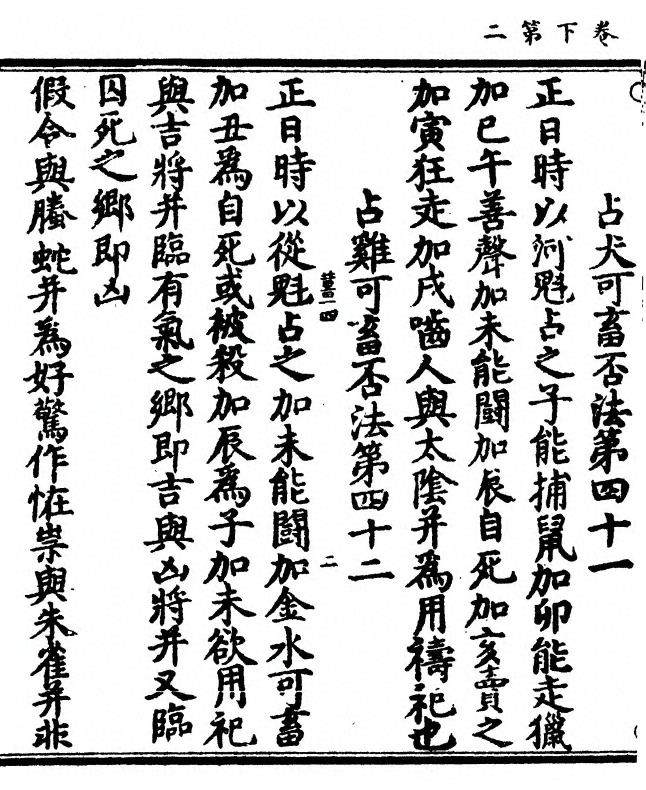 卷下第二
占犬可畜否法第四十一
正日時以河魁占之子能捕鼠加卯能走獵
加巳午善聲加未能鬪加辰自死加亥賣之
加寅狂走加戌嚙人與太陰并為用禱祀也
占雞可畜否法第四十二
正日時以從魁占之加未能鬪加金水可畜
加丑為自死或被殺加辰為子加未欲用祀
與吉將并臨有氣之鄉即吉與凶將并又臨
囚死之鄉即凶
假令與螣蛇并為好驚作恠祟與朱雀并非